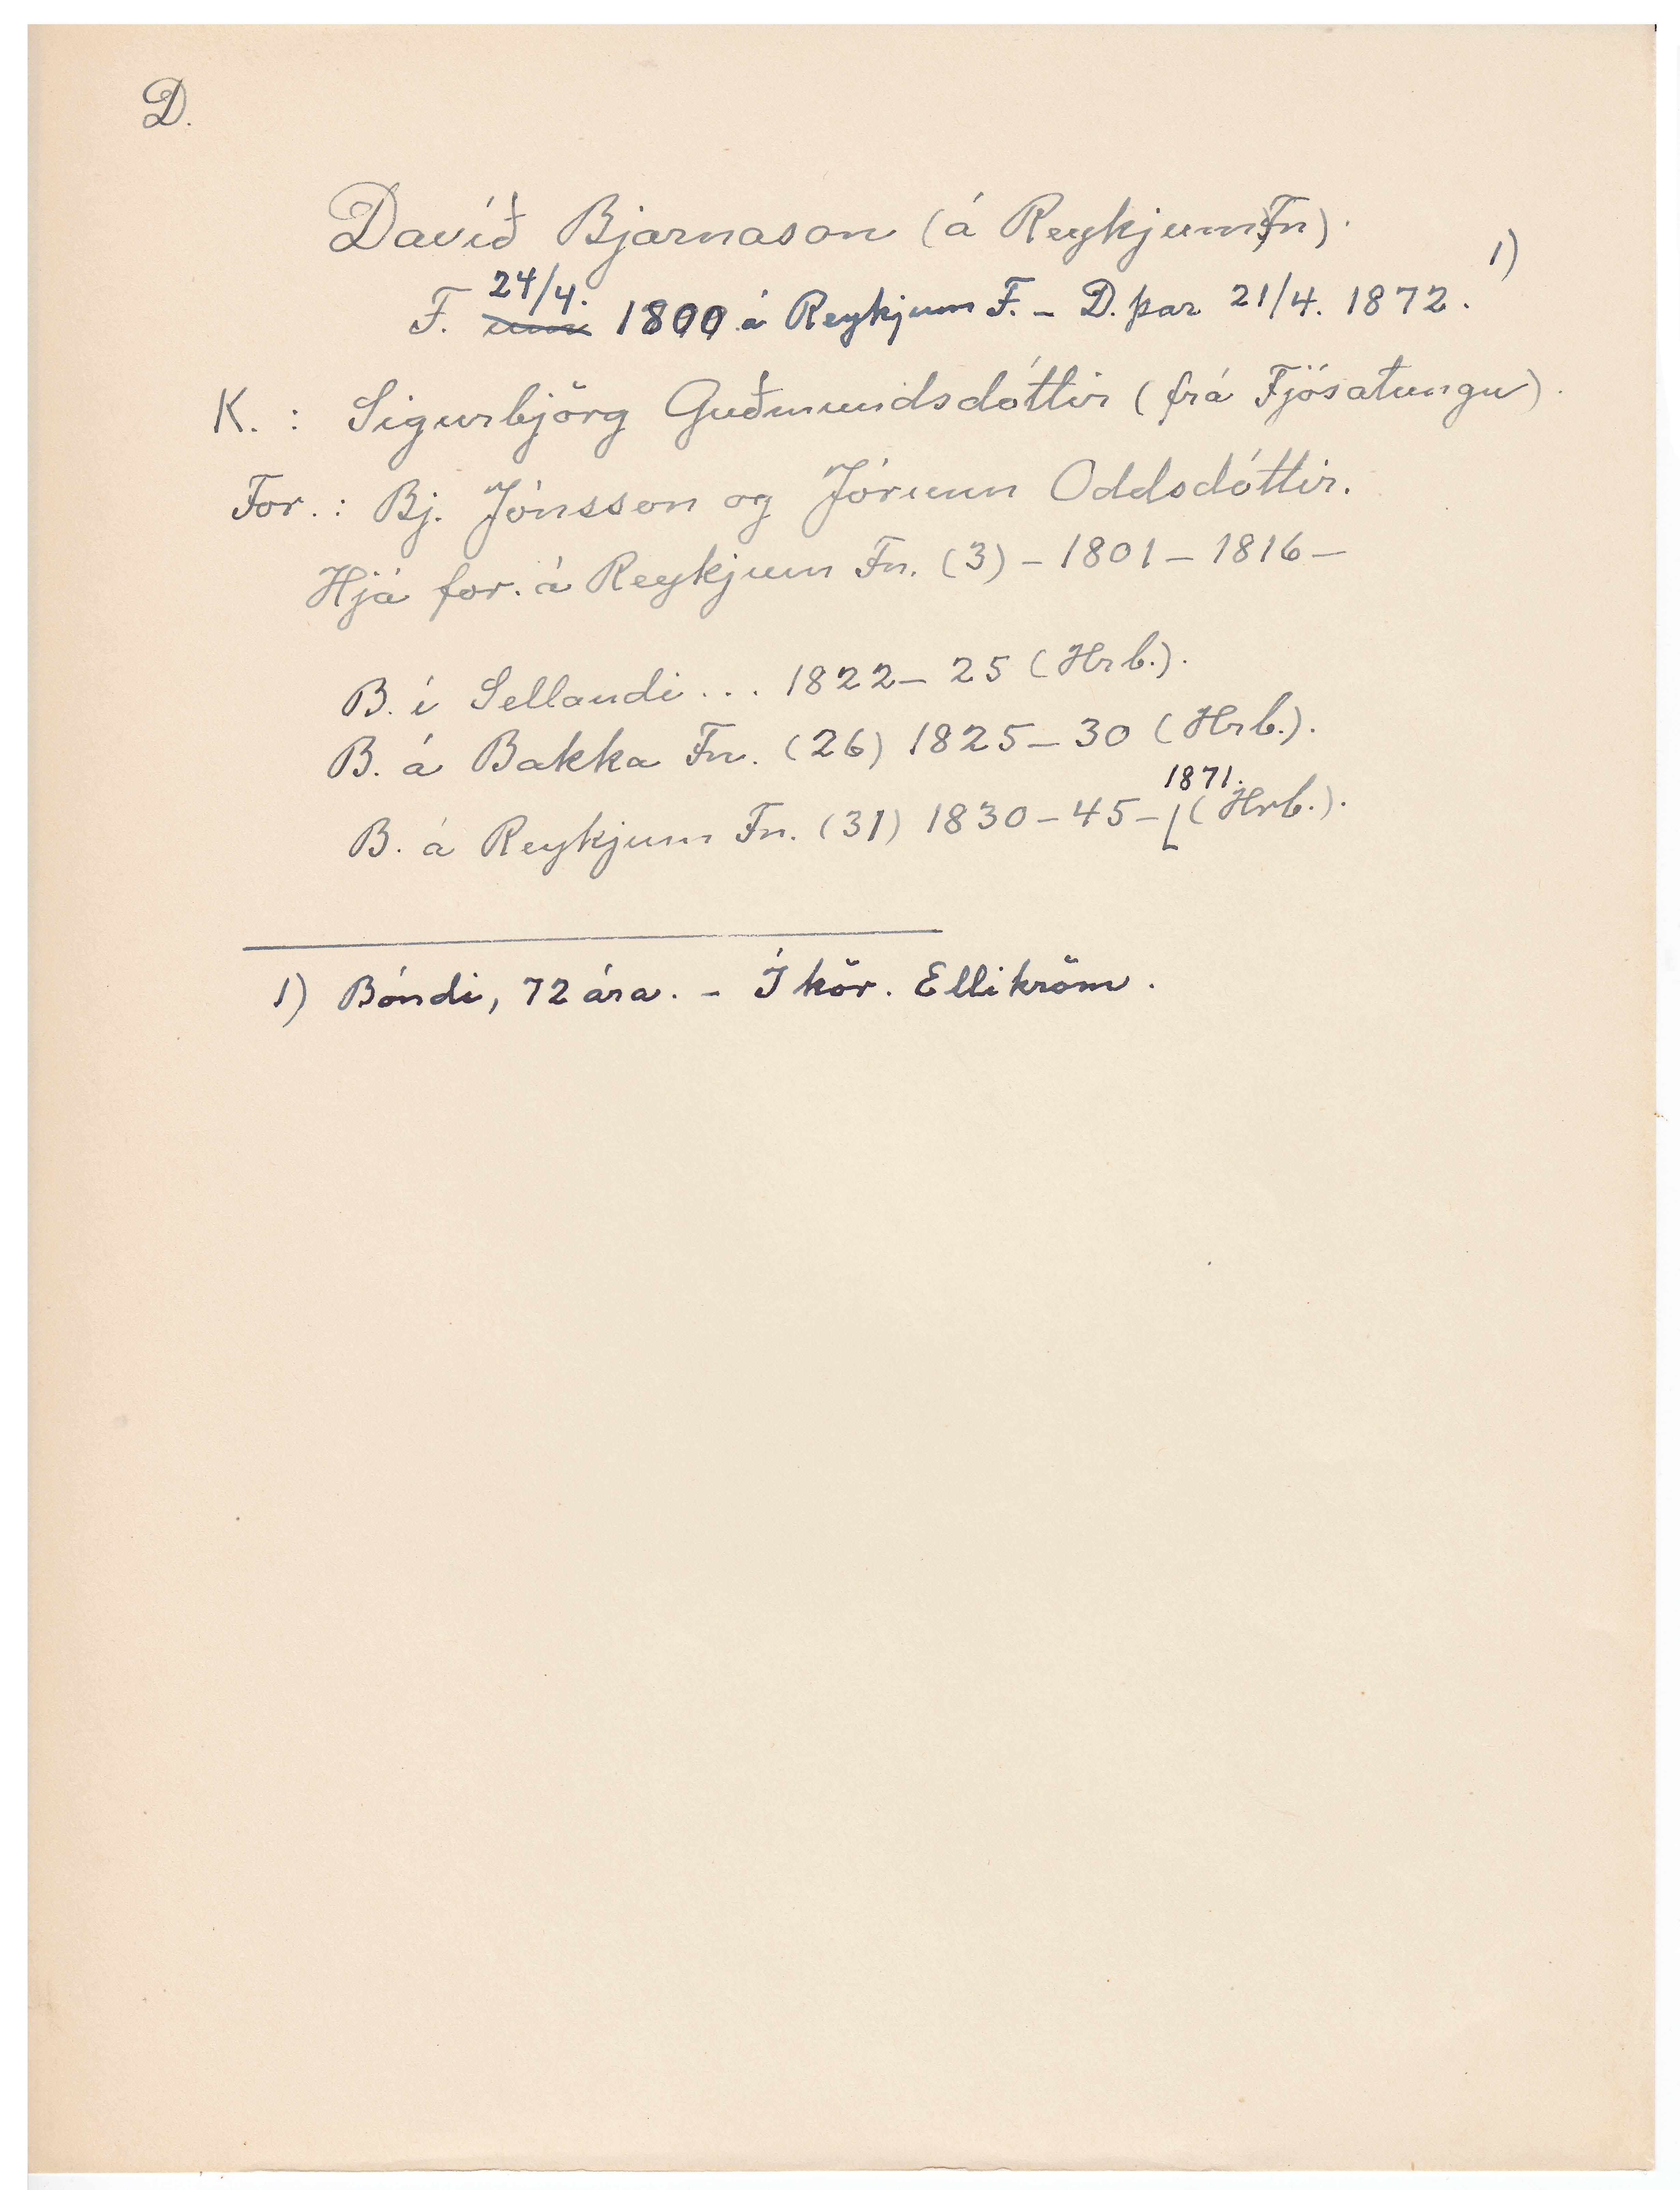 D.
Davíð Bjarnason (á Reykjum Fn).
F. 24/4. 1800 á Reykjum F. - D. þar 21/4. 1872. 1)
K. : Sigurbjörg Guðmundsdóttir (frá Fjósatungu).
For. : Bj. Jónsson og Jórunn Oddsdóttir.
Hjá for. á Reykjum Fn. (3) - 1801 - 1816 -
B. í Sellandi ... 1822 - 25 (Hrb.).
B. á Bakka Fn. (26) 1825 - 30 (Hrb.).
B. á Reykjum Fn. (31) 1830 - 45 - 1871. (Hrb.).
1) Bóndi, 72 ára. - Í kör. Ellikröm.